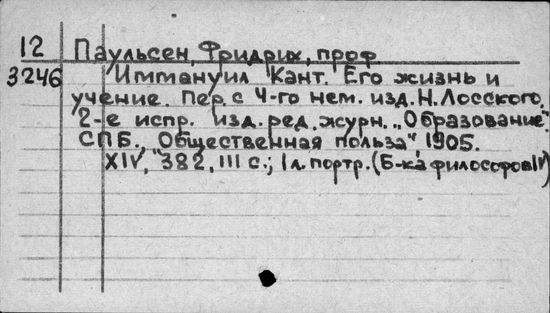 12 Паульсен, Фридрих, проф
3246 Иммануил Кант. Его жизнь и
учение. Пер. с 4-го нем. изд. Н. Лосского.
2-е испр. изд. ред. журн. „Образование".
СПБ., „Общественная польза", 1905.
XIV, 382, III с.; 1 л. портр. (Б-ка философов IV)